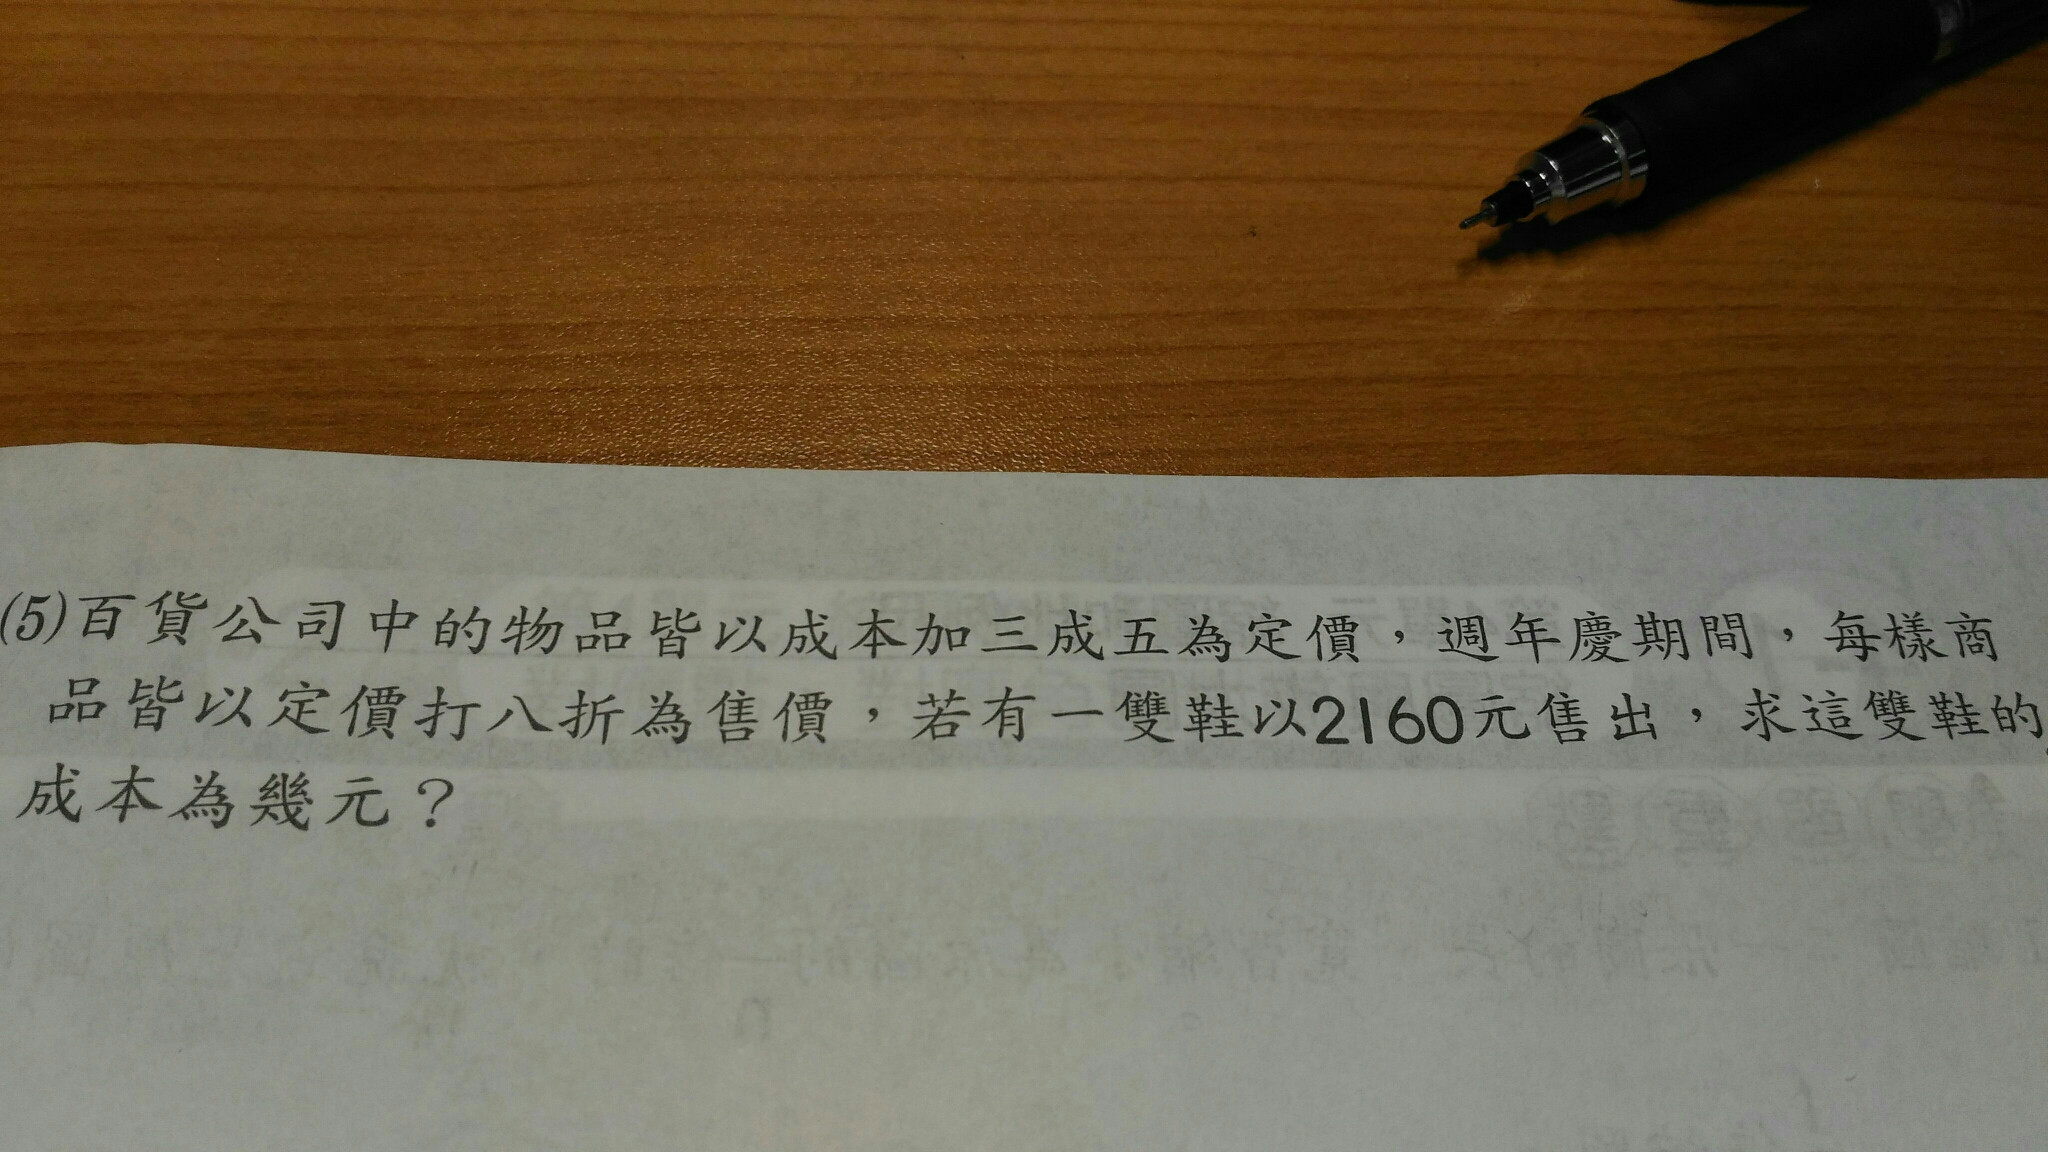 (5)百貨公司中的物品皆以成本加三成五為定價，週年慶期間，每樣商
品皆以定價打八折為售價，若有一雙鞋以2160元售出，求這雙鞋的
成本為幾元？